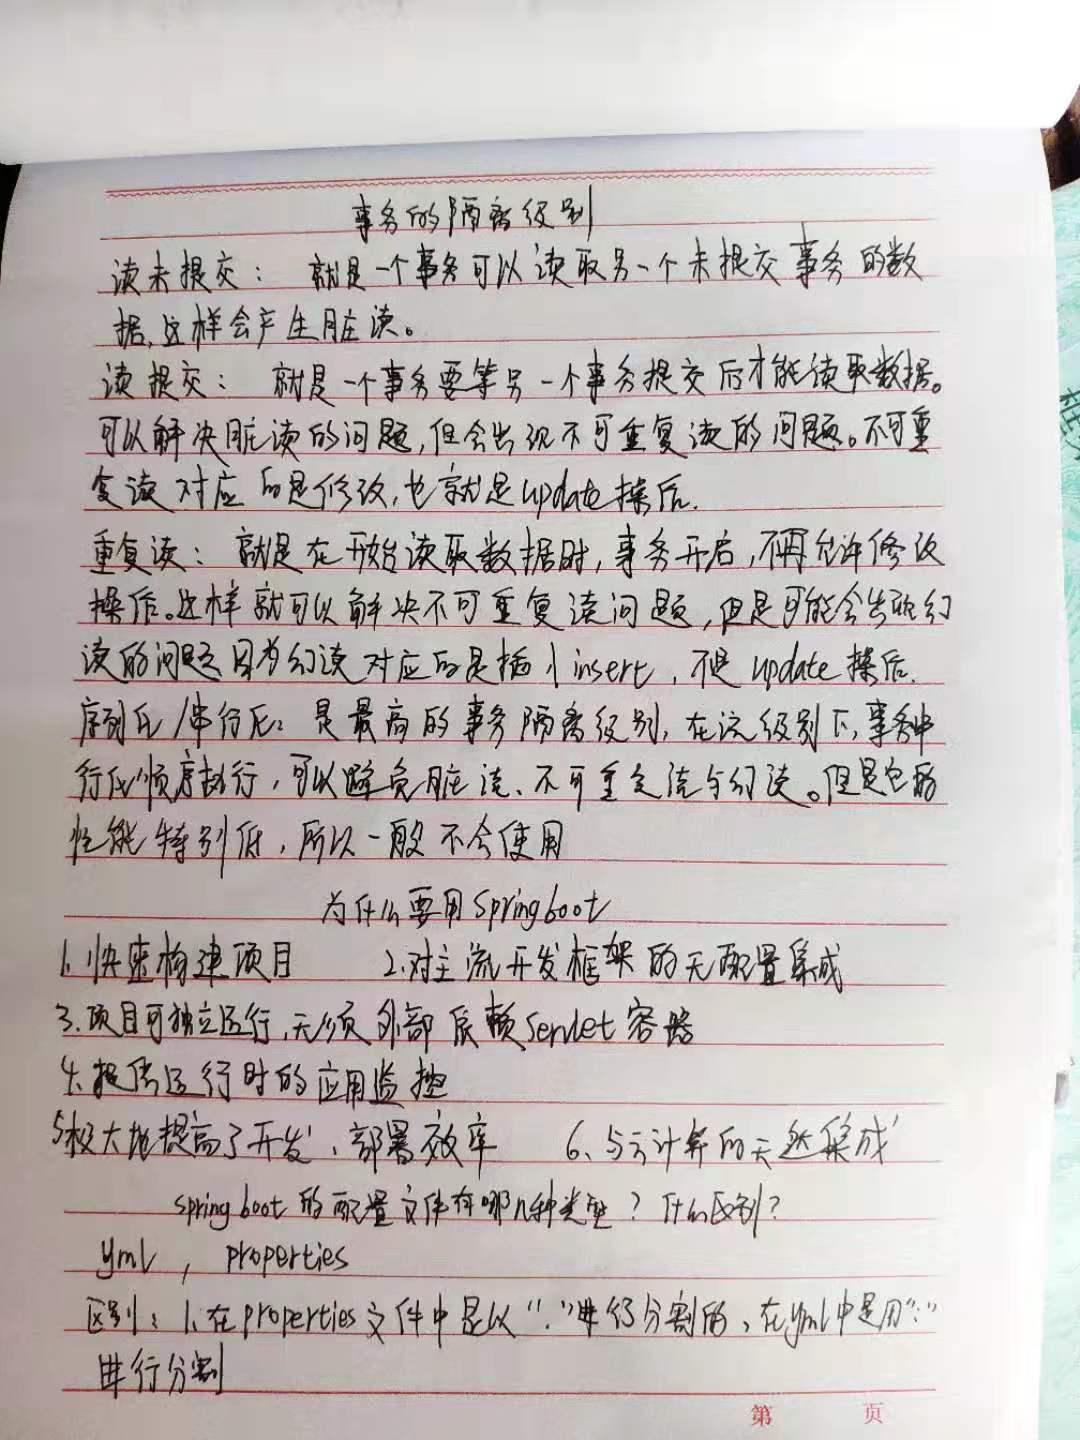 事务的隔离级别
读未提交： 就是一个事务可以读取另一个未提交事务的数
据,这样会产生脏读。
读提交： 就是一个事务要等另一个事务提交后才能读取数据。
可以解决脏读的问题,但会出现不可重复读的问题。不可重
复读对应的是修改,也就是update操作.
重复读： 就是在开始读取数据时,事务开启,不再允许修改
操作。这样就可以解决不可重复读问题,但是可能会出现幻
读的问题因为幻读对应的是插入insert,不是update操作.
序列化/串行化: 是最高的事务隔离级别,在这级别下,事务串
行化顺序执行,可以避免脏读、不可重复读与幻读。但是它的
性能特别低,所以一般不会使用
为什么要用Springboot
1.快速构建项目 2.对主流开发框架的无配置集成
3.项目可独立运行,无须外部依赖Servlet容器
4.提供运行时的应用监控
5极大地提高了开发、部署效率 6、与云计算的天然集成
spring boot的配置文件有哪几种类型? 什么区别?
yml , properties
区别: 1.在properties文件中是以"."进行分割的、在yml中是用":"
进行分割
第 页